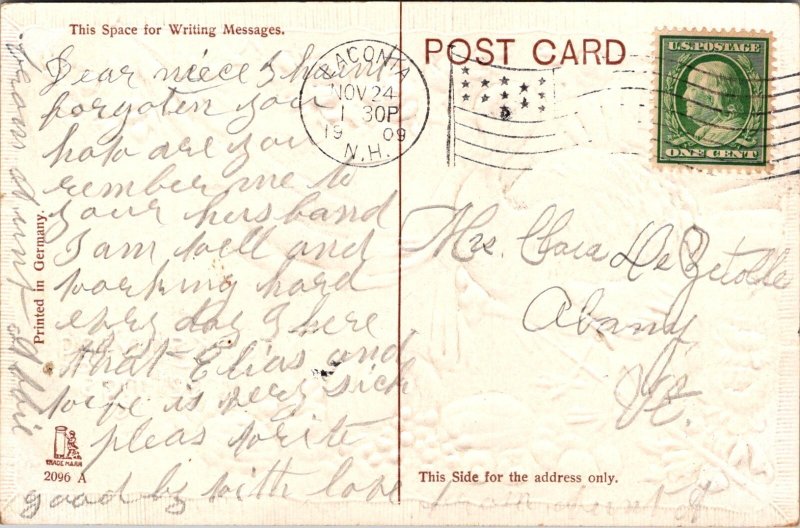 This Space for Writing Messages.
Dear niece I haint
forgoten you
how are you
rember me to
your husband
I am well and
working hard
every day I here
that Elias and
wife is very sick
pleas write
good by with love from Aunt A
from Aunt Abbie
Printed in Germany.
TRADE MARK
2096 A
POST CARD
LACONIA
NOV 24
1 30P
19 09
N.H.
U.S. POSTAGE
ONE CENT
Mrs. Clara De
Abany
Vt.
This Side for the address only.